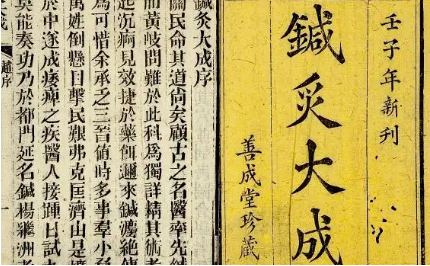 壬子年新刊
鍼灸大成
善成堂珍藏
鍼灸大成序
關民命其道尙矣顧古之名醫率先鍼
而黃岐問難於此科爲獨詳精其術者
起沉痾見效捷於藥餌邇來鍼灸絕傳
爲可惜余承乏三晉值時多事羣小
萬姓倒懸目擊民艱弗克匡濟由是
於中遂成痿痺之疾醫人接踵日試
莫能奏功乃於都門延名鍼楊繼洲者
趙序